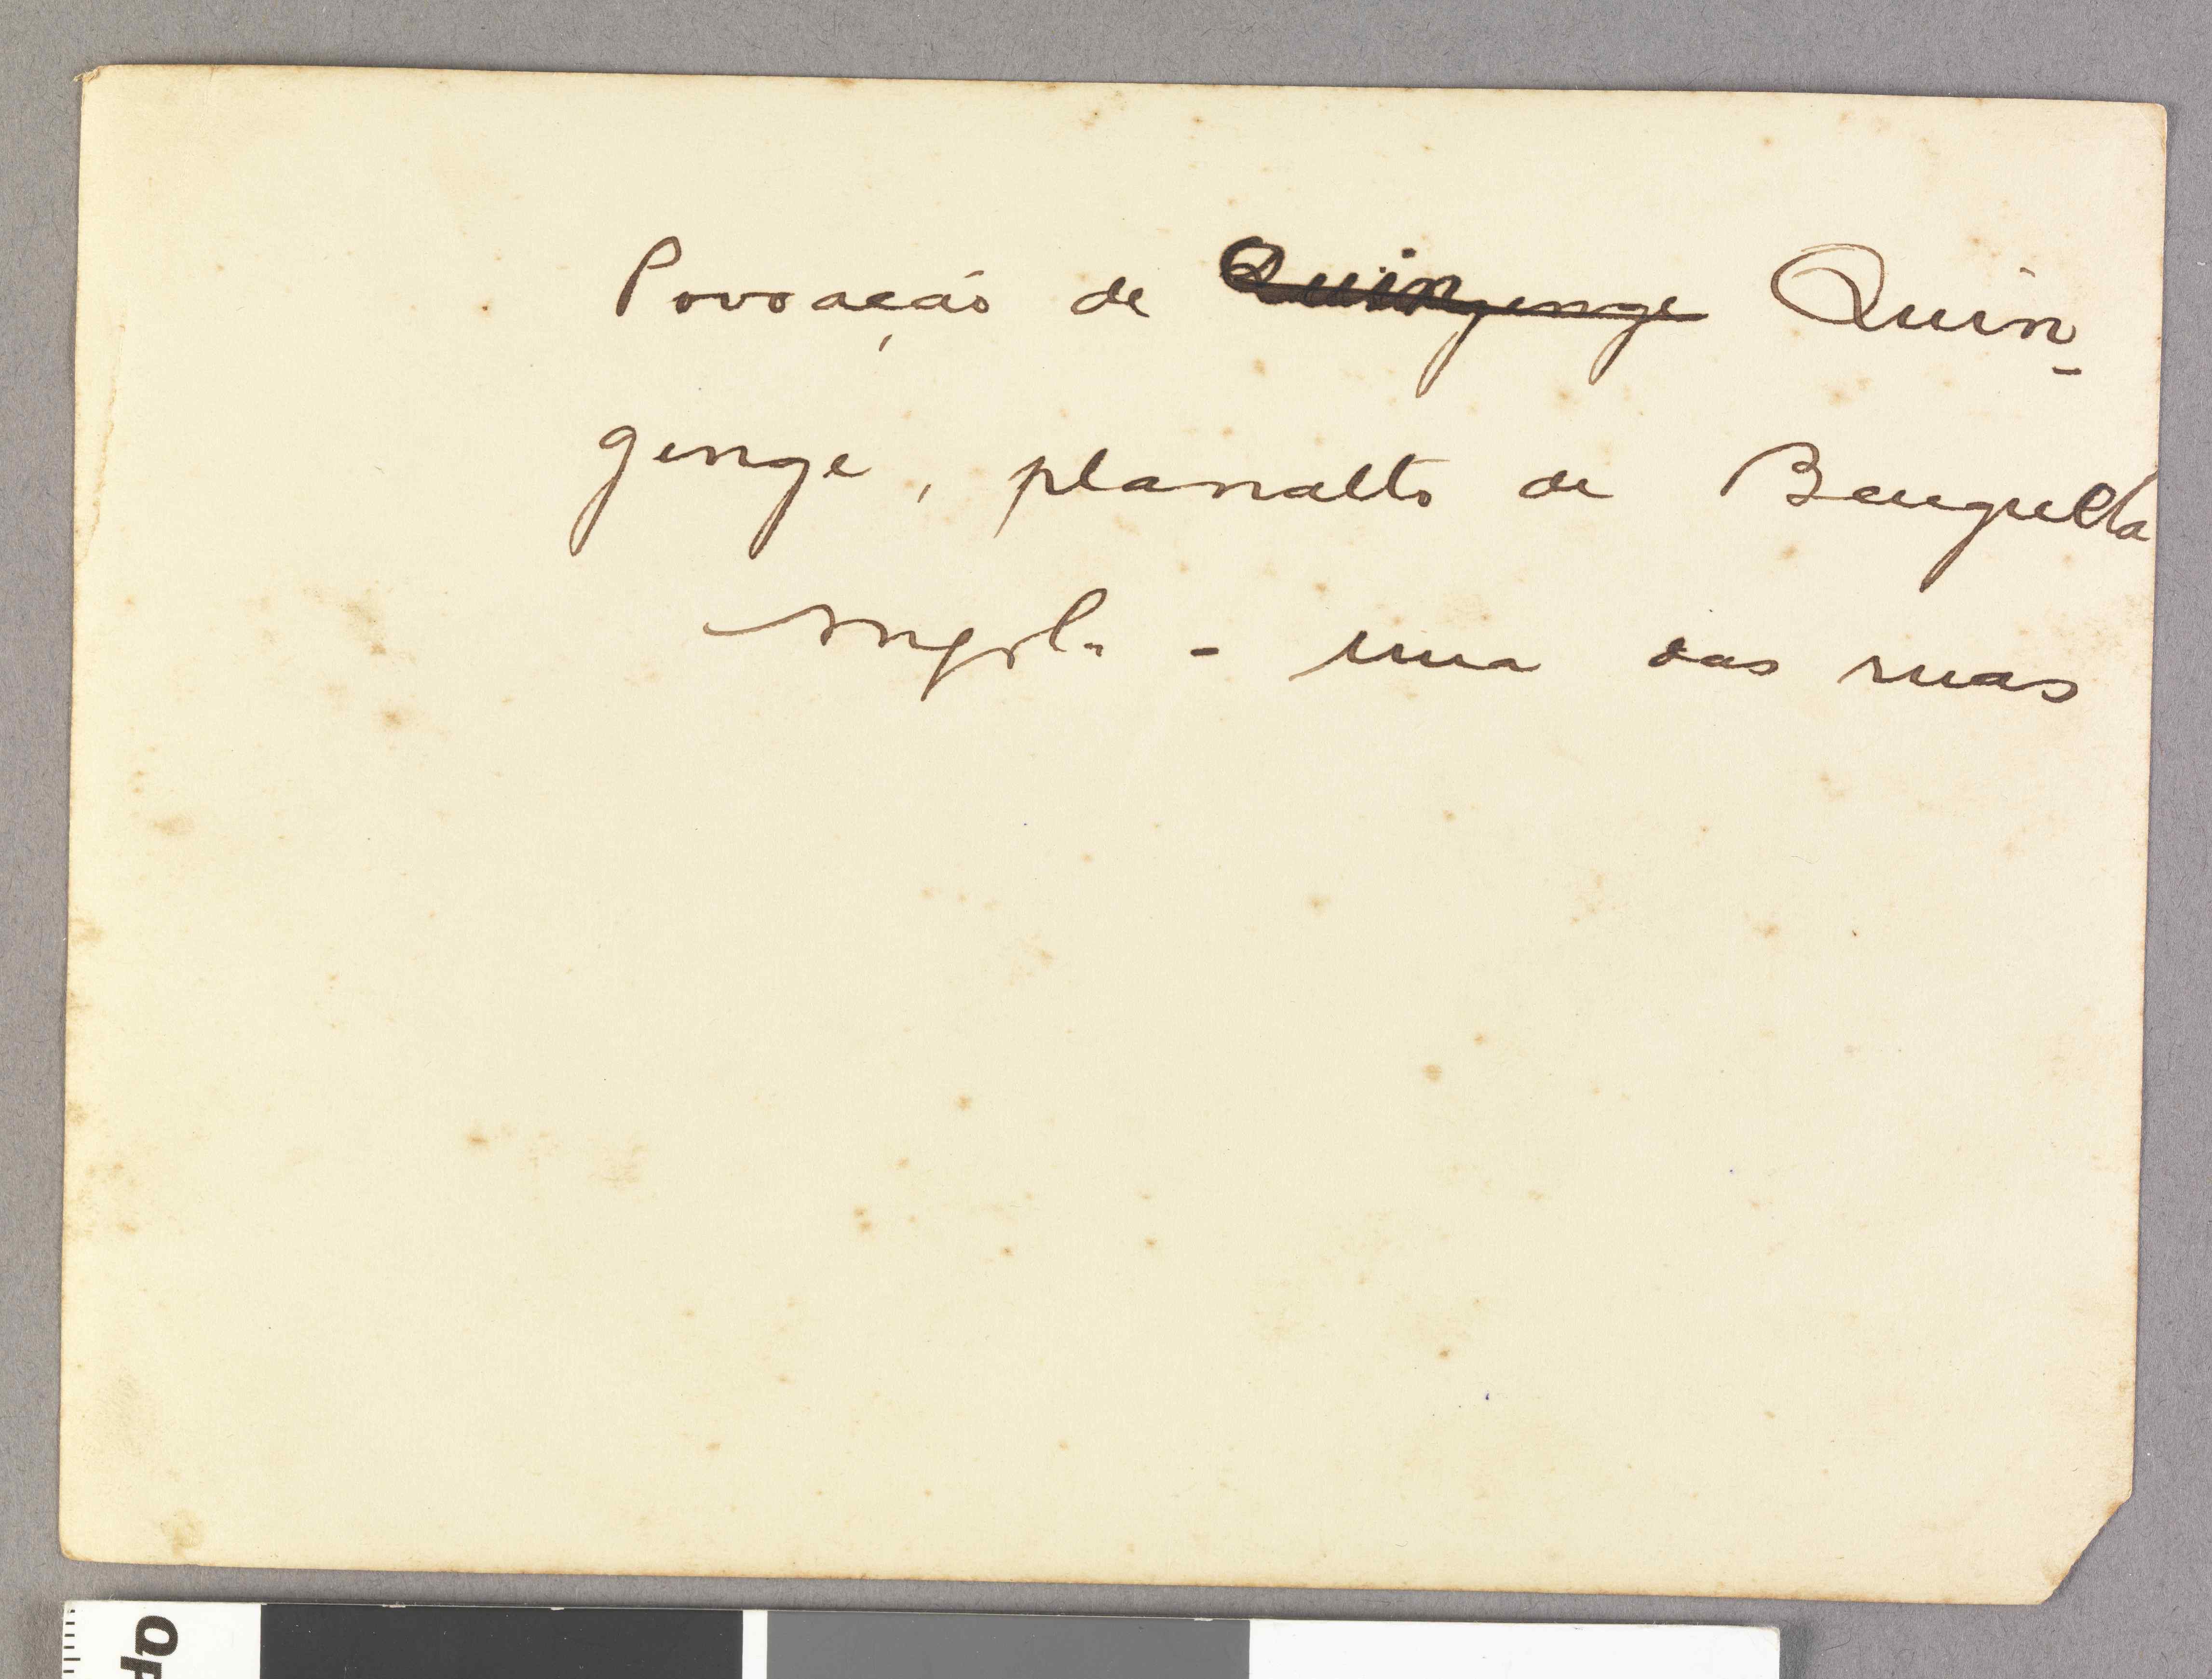 Povoação de Quingenge Quin-
genge, planalto de Benguella
Angola - uma das ruas